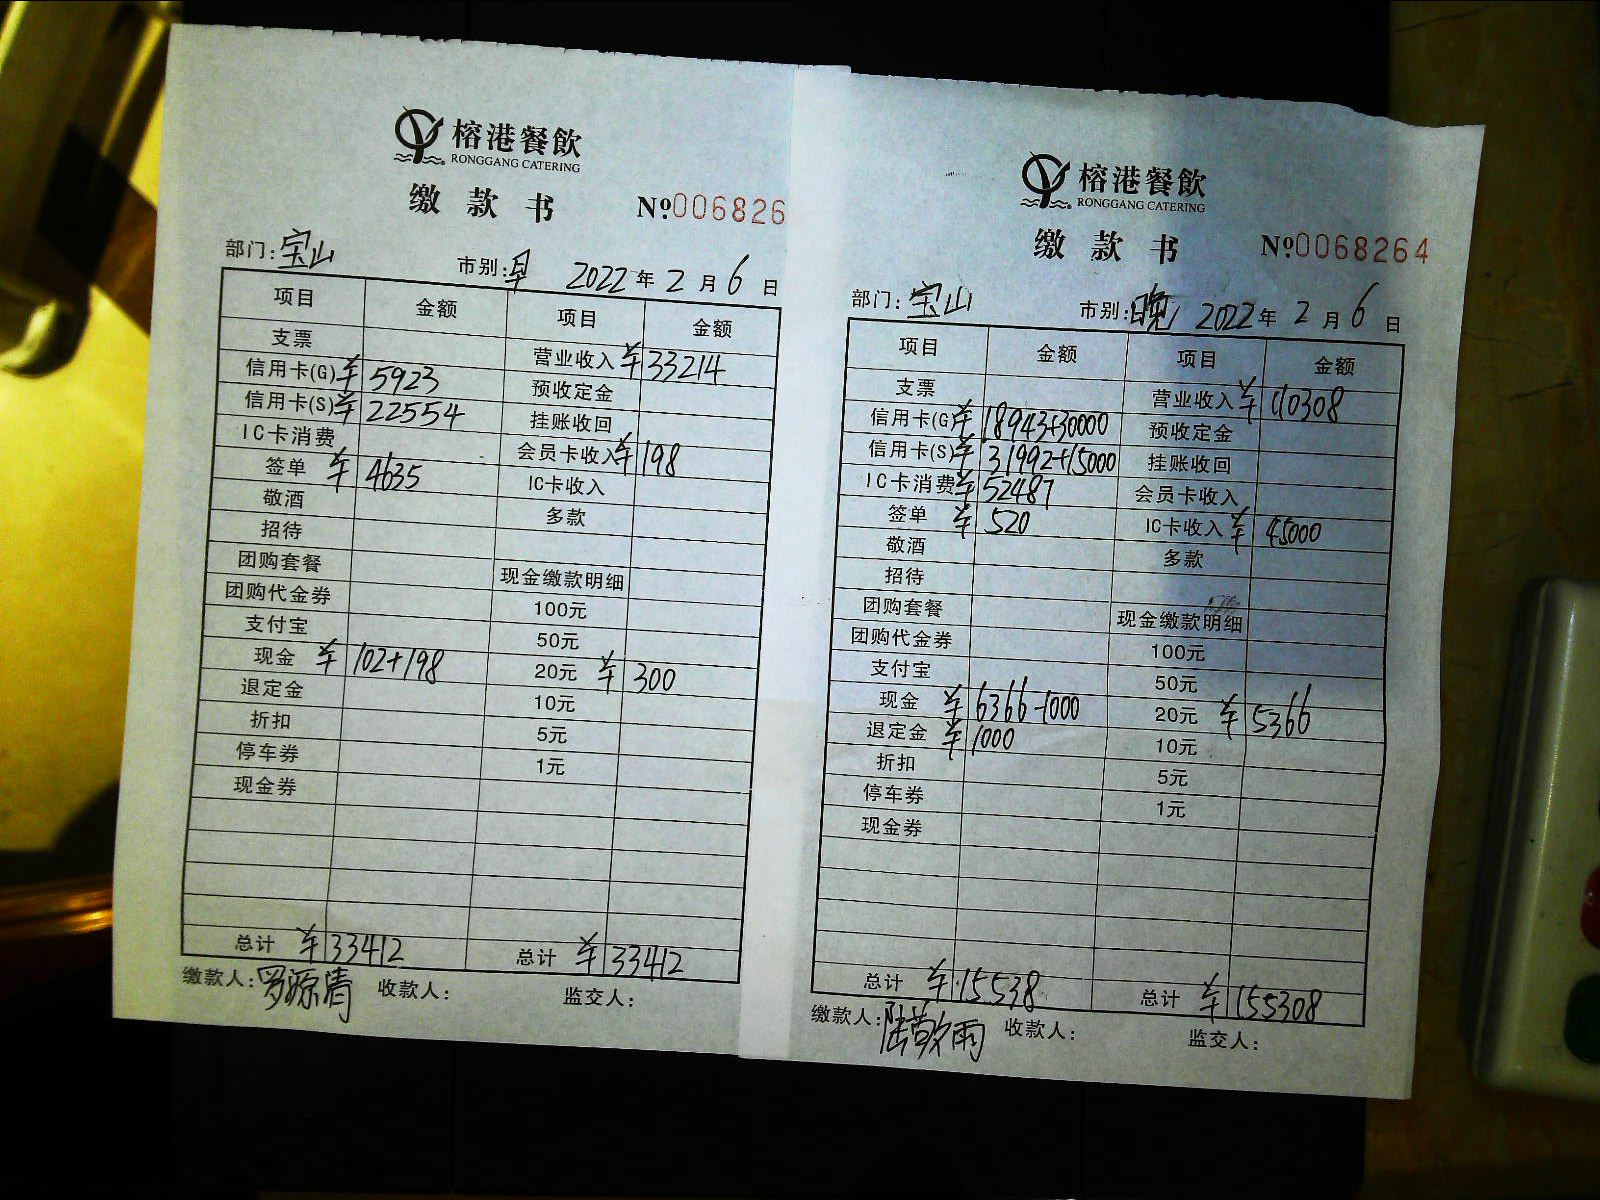 榕港餐飲
RONGGANG CATERING
缴款书 №006826
部门: 宝山 市别: 早 2022年2月6日
项目 金额 项目 金额
支票 营业收入 ¥33214
信用卡(G) ¥5923 预收定金
信用卡(S) ¥22554 挂账收回
IC卡消费 会员卡收入 ¥198
签单 ¥4635 IC卡收入
敬酒 多款
招待
团购套餐 现金缴款明细
团购代金券 100元
支付宝 50元
现金 ¥102+198 20元 ¥300
退定金 10元
折扣 5元
停车券 1元
现金券
总计 ¥33412 总计 ¥33412
缴款人: 罗源清 收款人: 监交人:
榕港餐飲
RONGGANG CATERING
缴款书 №0068264
部门: 宝山 市别: 晚 2022年2月6日
项目 金额 项目 金额
支票 营业收入 ¥110308
信用卡(G) ¥18943+30000 预收定金
信用卡(S) ¥31992+15000 挂账收回
IC卡消费 ¥52487 会员卡收入
签单 ¥520 IC卡收入 ¥45000
敬酒 多款
招待
团购套餐 现金缴款明细
团购代金券 100元
支付宝 50元
现金 ¥6366-1000 20元 ¥5366
退定金 ¥1000 10元
折扣 5元
停车券 1元
现金券
总计 ¥15538 总计 ¥155308
缴款人: 收款人: 监交人: